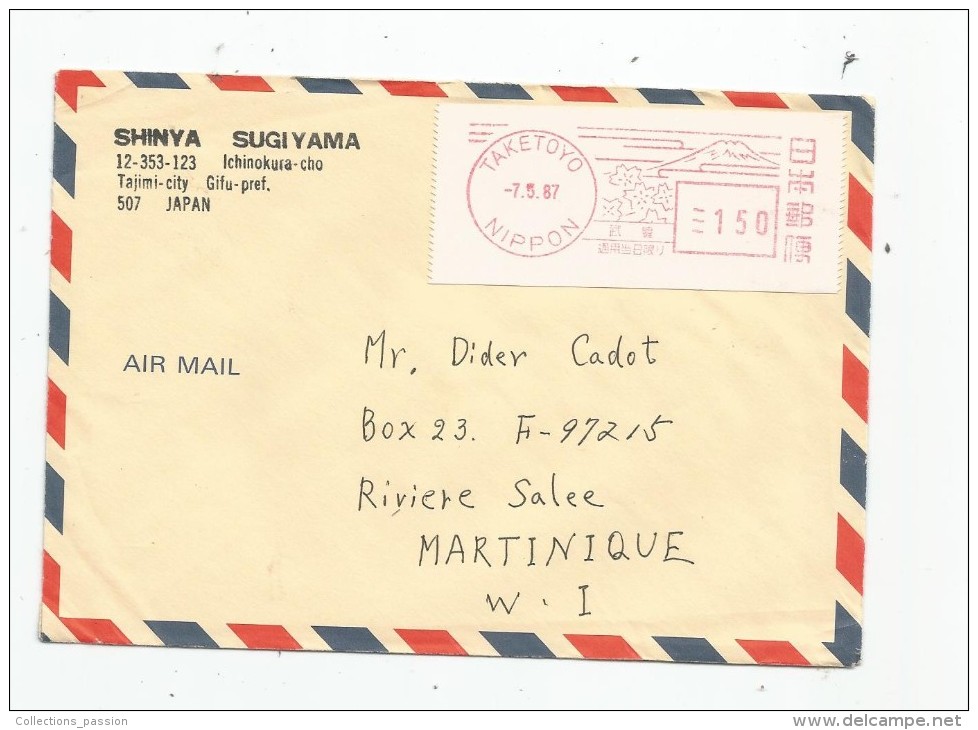 SHINYA SUGIYAMA
12-353-123 Ichinokura-cho
Tajimi-city Gifu-pref.
507 JAPAN
TAKETOYO
-7.5.87
NIPPON
150
日本郵便
武豊
適用当日限り
AIR MAIL
Mr. Dider Cadot
Box 23. F-97215
Riviere Salee
MARTINIQUE
W. I
Collections_passion
www.delcampe.net